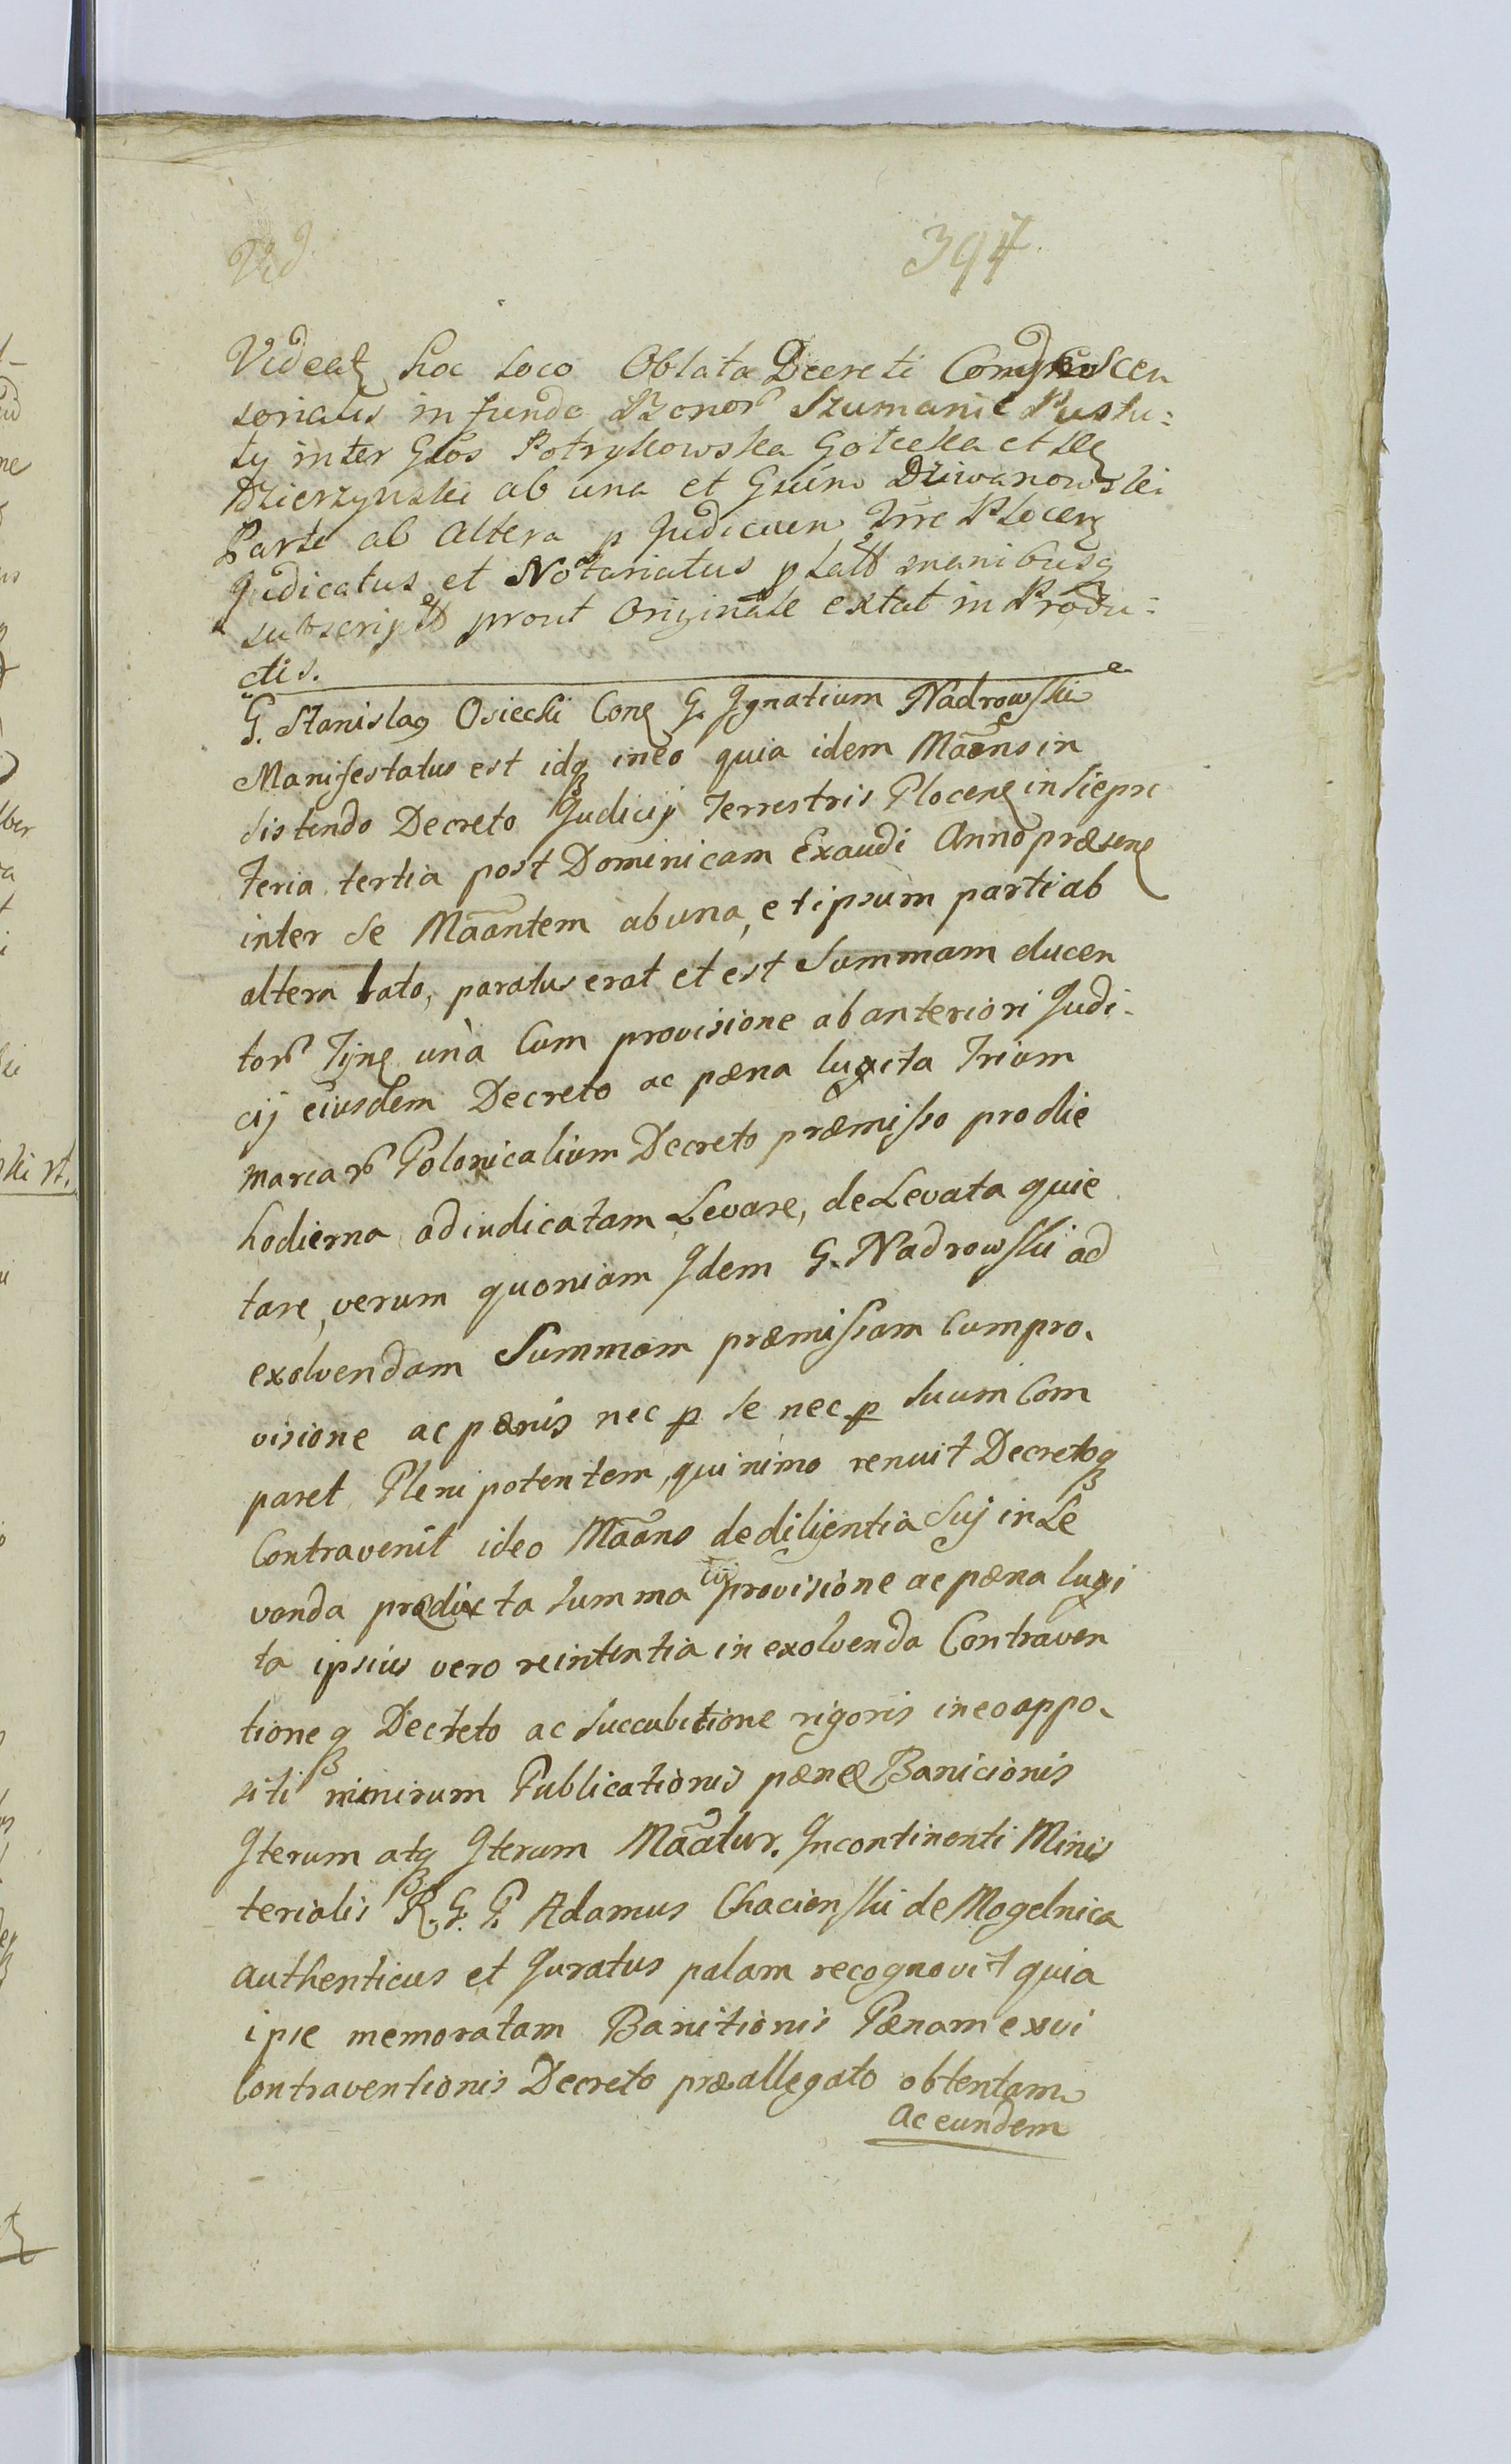 Vid
394
Videat hoc loco Oblata Decreti Condescen
sorialis in fundo Bonor Szumanie Pustu=
ly inter Gsos Potrykowska Golecka et
Dzierzynski ab una et Gsum Dziwanowski
Parte ab altera p Judicium Trre Plocen
Judicatus et Notariatus p lati manibusq
subscript prout Originale extat in Produ=
ctis.
G. Stanislaq Osiecki Cone G. Ignatium Nadrowski
Manifestatus est idq ineo quia idem Maans in
sistendo Decreto Judicij Terrestris Plocen in Siepre
Feria tertia post Dominicam Exaudi Anno præsene
inter se Maantem ab una, et ipsum parti ab
altera lato, paratus erat et est Summam ducen
tor Tyne unà Cum provisione ab anteriori Judi-
cij eiusdem Decreto ac pæna luxita Trium
marcar Polonicalium Decreto præmisso pro die
hodierna adiudicatam Levare, de Levata quie
tare, verum quoniam Idem G. Nadrowski ad
exolvendam Summam præmissam Cum pro-
visione ac pænis nec p se nec p suum Com
paret Plenipotentem, quinimo renuit Decretoq
Contravenit ideo Maans de diligentia Sui in Le
vanda prædicta summa cu provisione ac pæna luxi
ta ipsius vero reintentia in exolvenda Contraven
tioneq Decreto ac succubitione rigoris in eo appo-
siti nimirum Publicationis pænæ Banicionis
Iterum atq Iterum Maatur. Incontinenti Minis
terialis R. G. P. Adamus Chacienski de Mogelnica
authenticus et Juratus palam recognovit quia
ipse memoratam Banitionis Pænam ex vi
Contraventionis Decreto præallegato obtentam
ac eundem